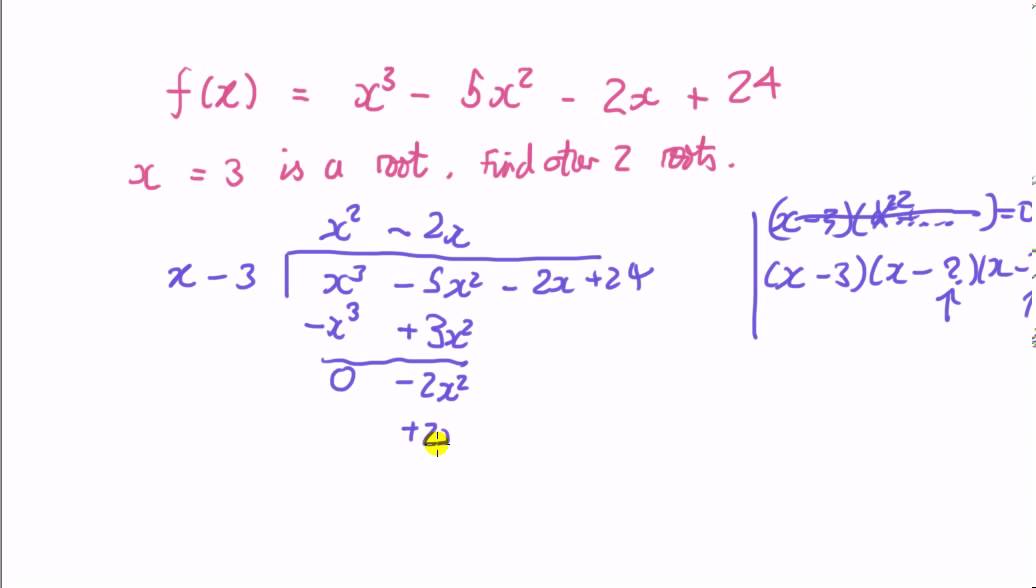 f(x) = x³ - 5x² - 2x + 24
x = 3 is a root. Find other 2 roots.
x² - 2x
x - 3 x³ - 5x² - 2x + 24
-x³ + 3x²
0 - 2x²
+2
(x-3)( ....)=0
(x-3)(x-?)(x-